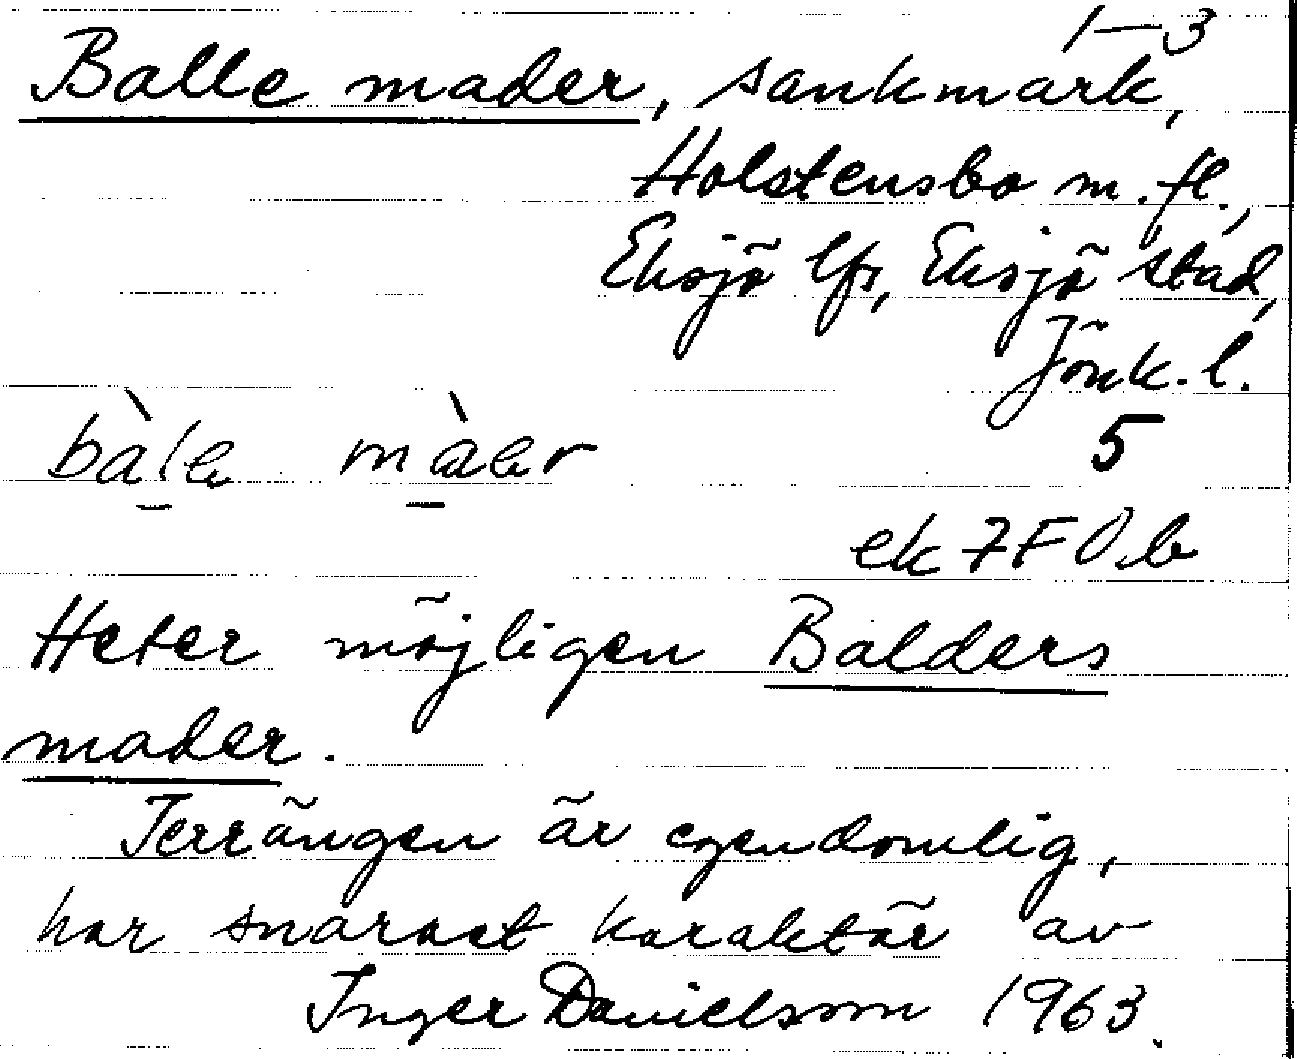 1-3
Balle mader, sankmark,
Holstensbo m.fl.,
Eksjö lfs, Eksjö stad,
Jönk.l.
bàle màer
5
ek 7F0b
Heter möjligen Balders
mader.
Terrängen är egendomlig,
har snarast karaktär av
Inger Danielsson 1963.